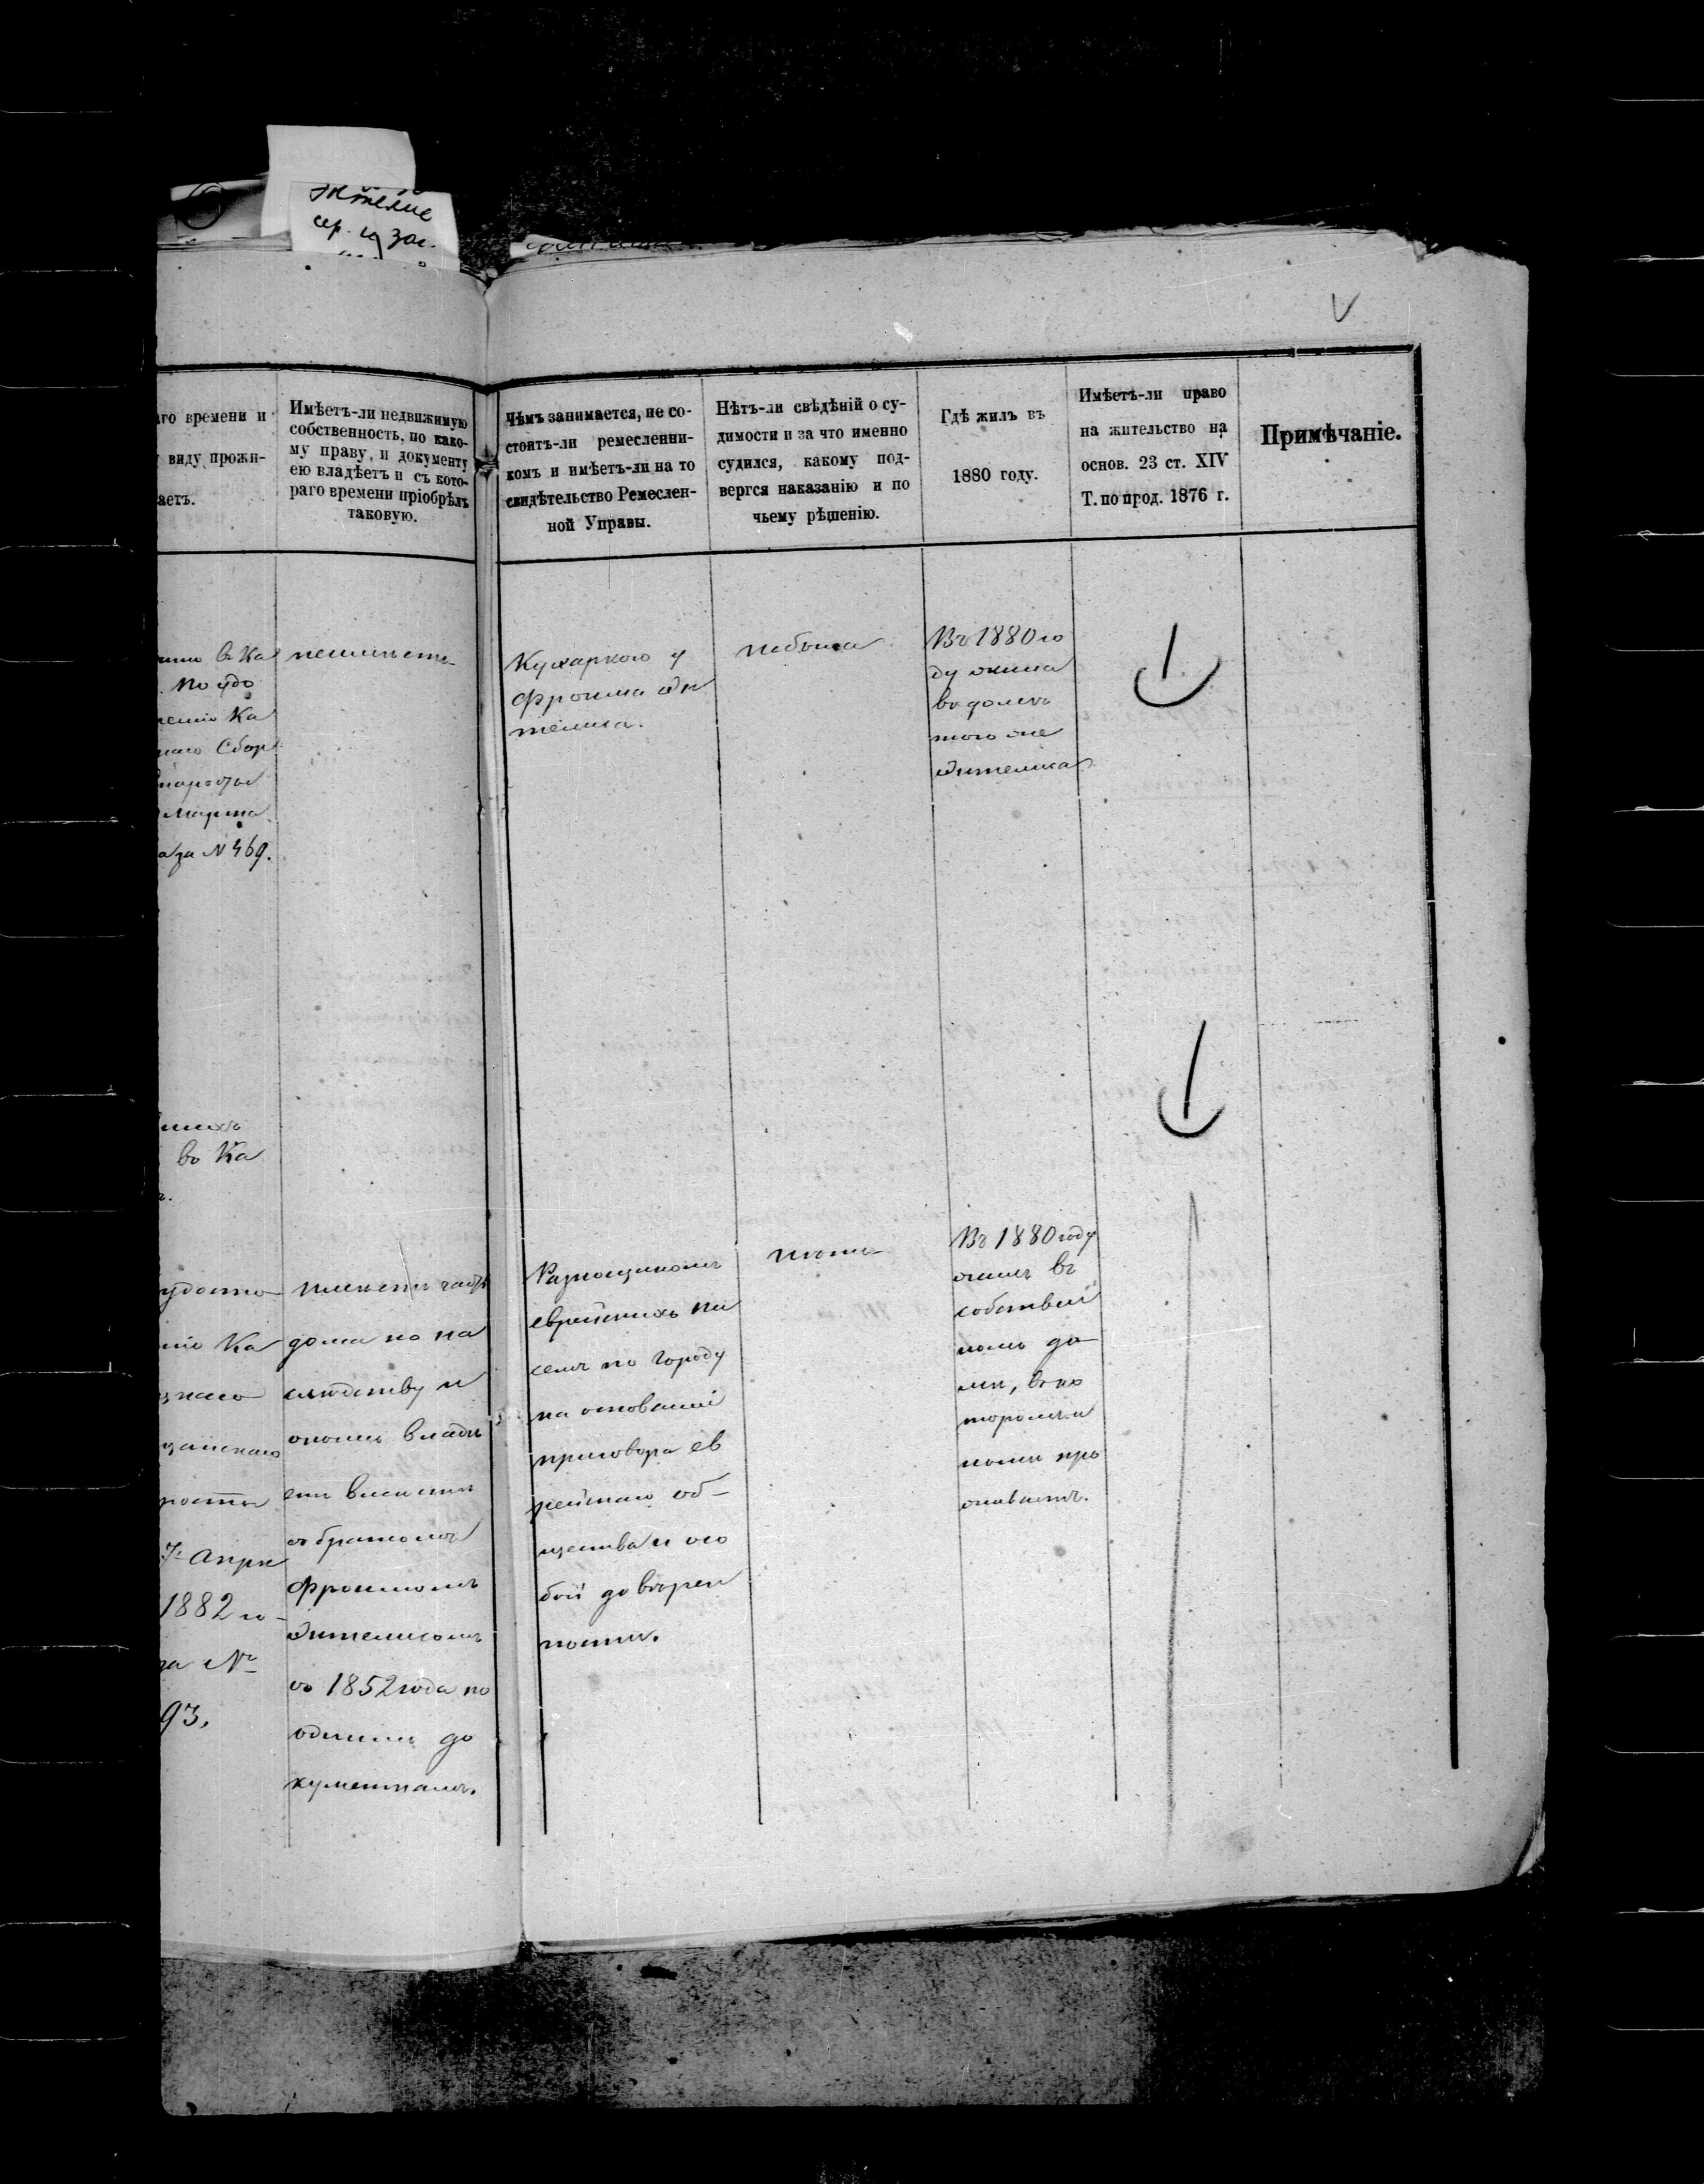 сер. и заг.
V
аго времени и
у виду прожи-
аетъ.
Имѣетъ-ли недвижимую
собственность, по како-
му праву, и документу
ею владѣетъ и съ кото-
раго времени пріобрѣлъ
таковую.
Чѣмъ занимается, не со-
стоитъ-ли ремесленни-
комъ и имѣетъ-ли на то
свидѣтельство Ремеслен-
ной Управы.
Нѣтъ-ли свѣдѣній о су-
димости и за что именно
судился, какому под-
вергся наказанію и по
чьему рѣшенію.
Гдѣ жилъ въ
1880 году.
Имѣетъ-ли право
на жительство на
основ. 23 ст. XIV
Т. по прод. 1876 г.
Примѣчаніе.
в Ка
по удо
ренію Ка
наго Сбор
старосты
марта
за № 469.
неимѣетъ
Кухаркою у
Фроима Эи
телиса.
небыла
Въ 1880 го
ду жила
въ домѣ
того же
Эителиса
во Ка
удосто
ніе Ка
знаго
росты
7 Апрѣ
1882 го
за №
93.
имѣетъ часть
дома по на
слѣдству и
оною владѣ
етъ вмѣстѣ
съ братомъ
Фроимомъ
Эителисомъ
съ 1852 года по
однимъ до
кументамъ.
Разнощикомъ
еврейскихъ пи
семъ по городу
на основаніи
приговора ев
рейскаго об-
щества и осо
бой доверен
ности.
тоже
Въ 1880 году
жилъ въ
собствен
номъ до
мѣ, въ ко
торомъ и
нынѣ про
живаетъ.